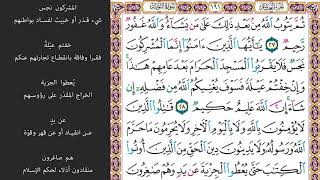 ١٩١
ثُمَّ يَتُوبُ ٱللَّهُ مِنۢ بَعْدِ ذَٰلِكَ عَلَىٰ مَن يَشَآءُ وَٱللَّهُ غَفُورٌ
رَّحِيمٌ ٢٧ يَٰٓأَيُّهَا ٱلَّذِينَ ءَامَنُوٓا۟ إِنَّمَا ٱلْمُشْرِكُونَ
نَجَسٌ فَلَا يَقْرَبُوا۟ ٱلْمَسْجِدَ ٱلْحَرَامَ بَعْدَ عَامِهِمْ هَٰذَا
وَإِنْ خِفْتُمْ عَيْلَةً فَسَوْفَ يُغْنِيكُمُ ٱللَّهُ مِن فَضْلِهِۦٓ
إِن شَآءَ إِنَّ ٱللَّهَ عَلِيمٌ حَكِيمٌ ٢٨ قَٰتِلُوا۟ ٱلَّذِينَ
لَا يُؤْمِنُونَ بِٱللَّهِ وَلَا بِٱلْيَوْمِ ٱلْءَاخِرِ وَلَا يُحَرِّمُونَ مَا حَرَّمَ
ٱللَّهُ وَرَسُولُهُۥ وَلَا يَدِينُونَ دِينَ ٱلْحَقِّ مِنَ ٱلَّذِينَ أُوتُوا۟
ٱلْكِتَٰبَ حَتَّىٰ يُعْطُوا۟ ٱلْجِزْيَةَ عَن يَدٍ وَهُمْ صَٰغِرُونَ
المشركون نجس
شيء قذر أو خبيث لفساد بواطنهم
خفتم عيلة
فقرا وفاقة بانقطاع تجارتهم عنكم
يُعطوا الجزية
الخراج المقدّر على رؤوسهم
عن يدٍ
عن انقياد أو عن قهر وقوة
هم صاغرون
منقادون أذلاء لحكم الإسلام